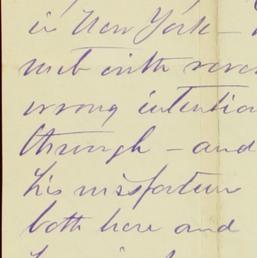 in New York –
met with
wrong intention
through – and
his misfortun
both here and